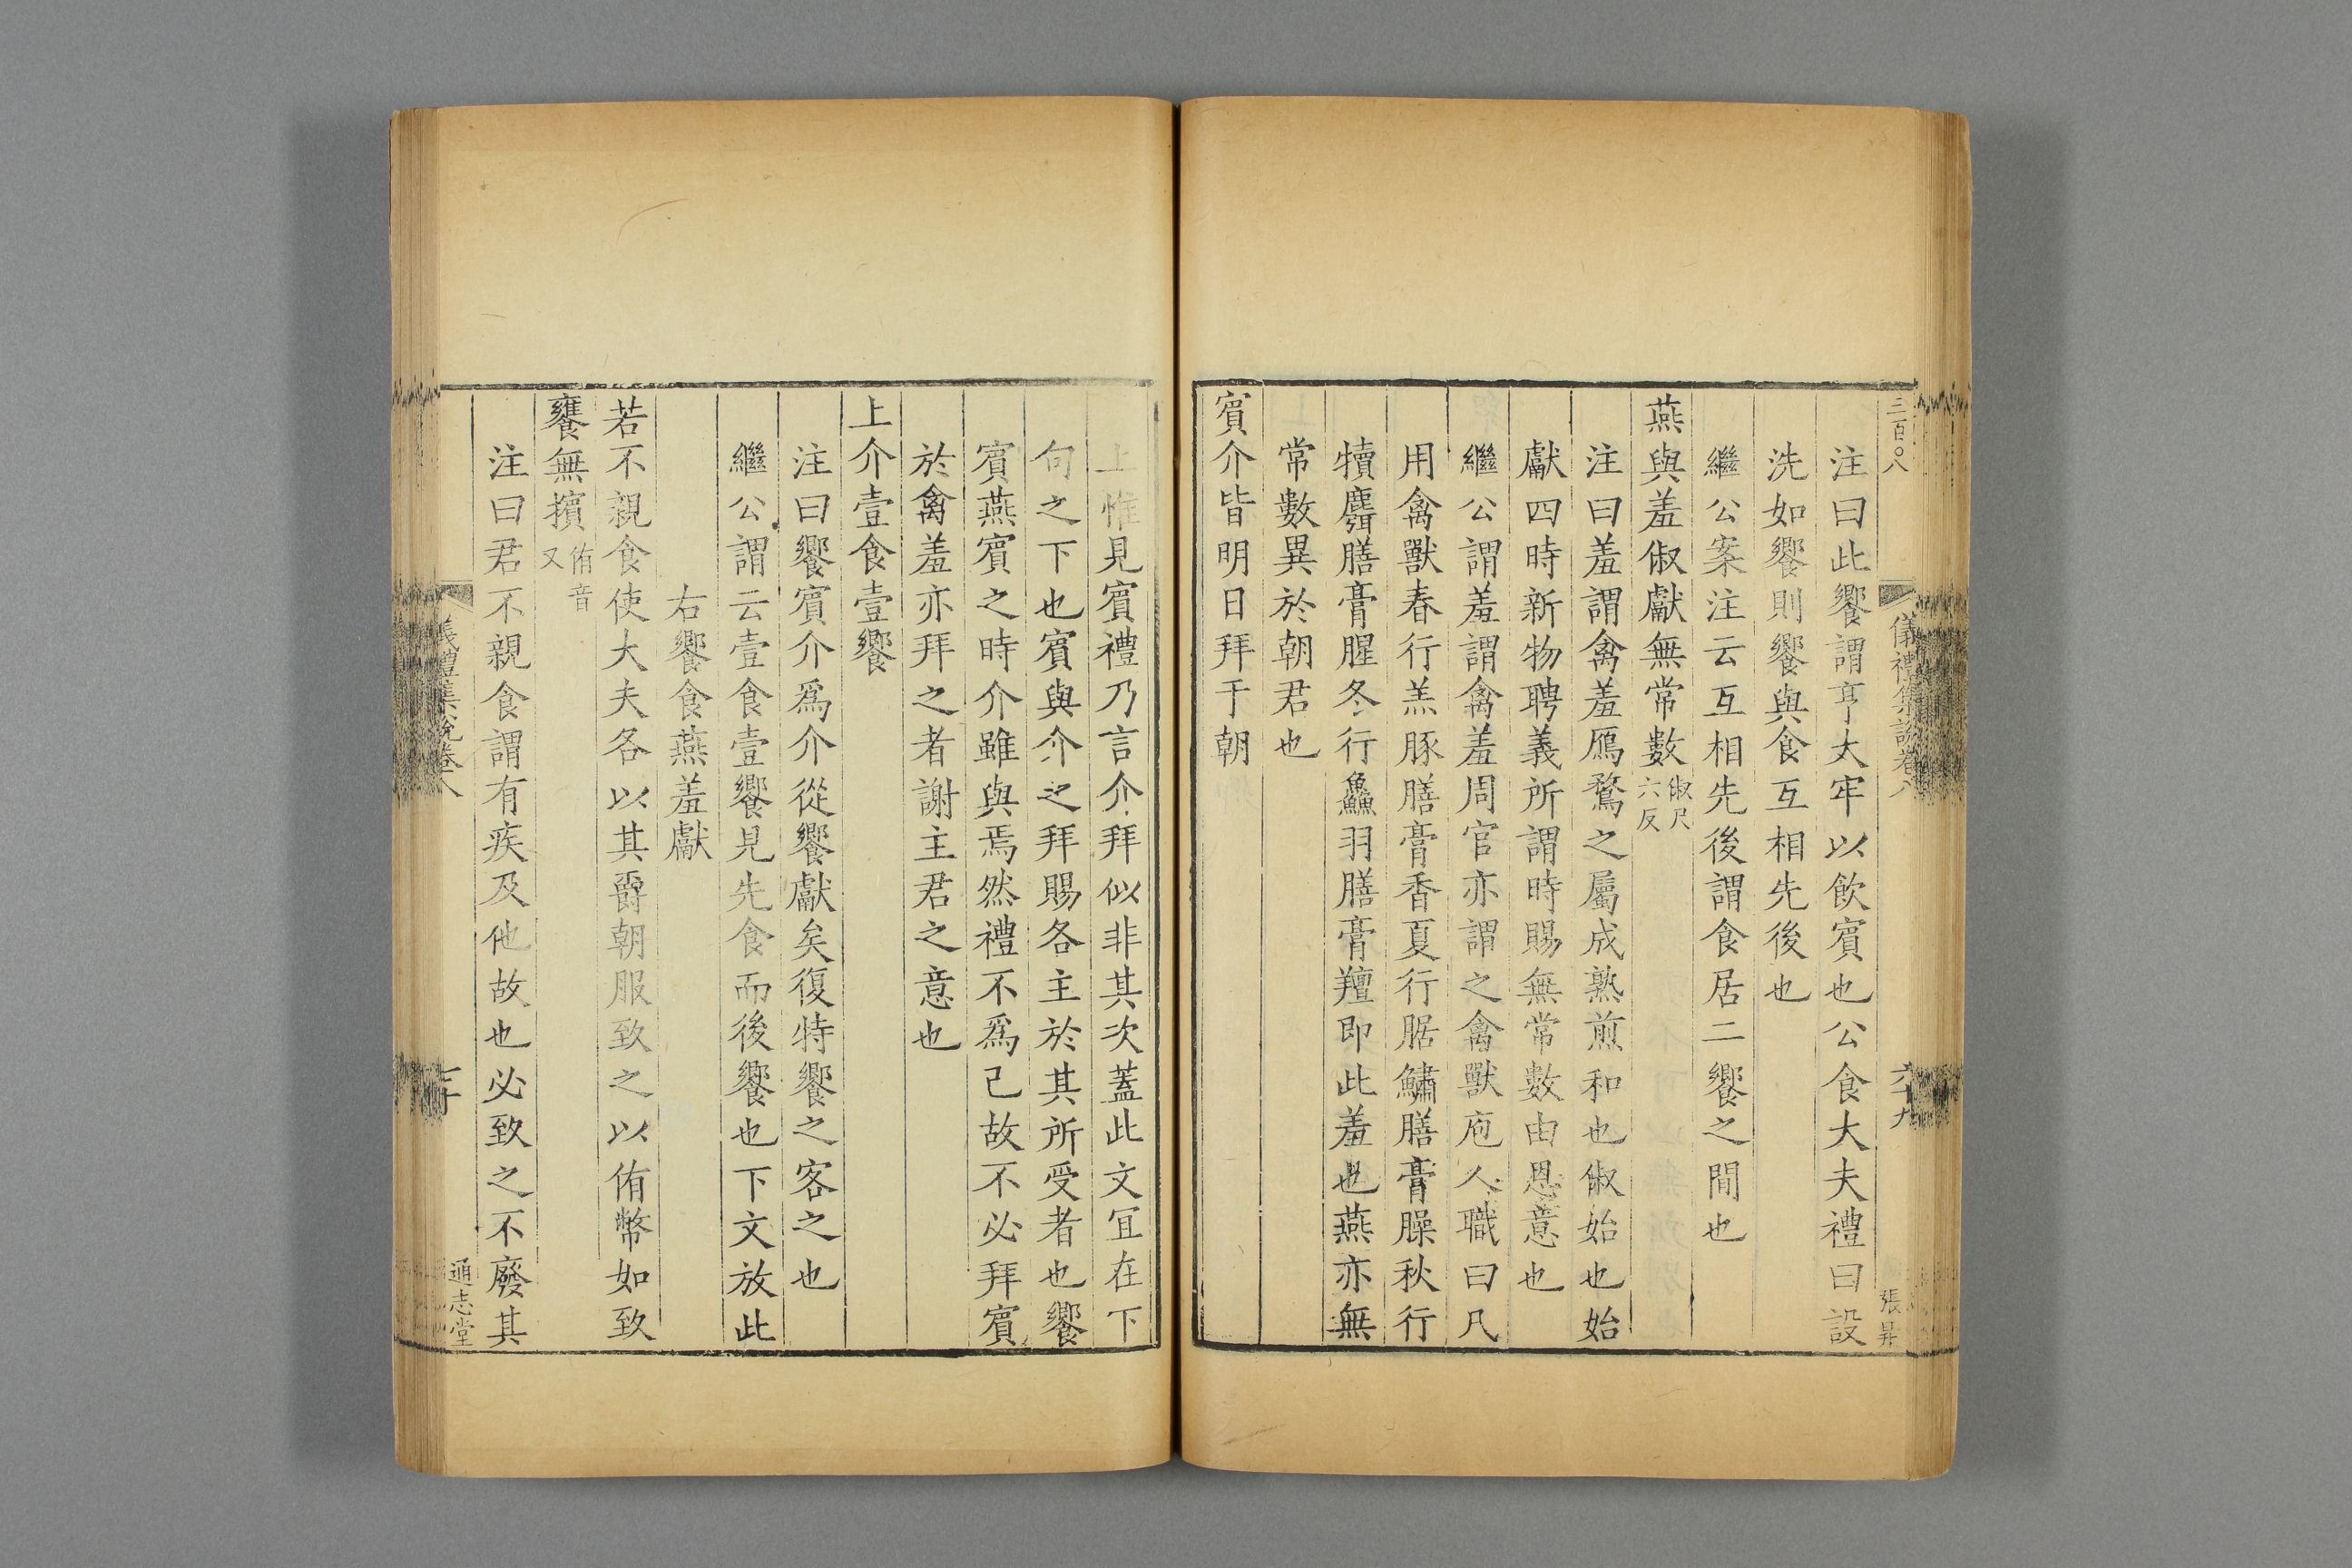 三百〇八
儀禮集說卷八
六十九
張昇
注曰此饗謂亨大牢以飲賔也公食大夫禮曰設
洗如饗則饗與食互相先後也
繼公案注云互相先後謂食居二饗之間也
燕與羞俶獻無常數俶尺六反
注曰羞謂禽羞鴈鶩之屬成熟煎和也俶始也始
獻四時新物聘義所謂時賜無常數由恩意也
繼公謂羞謂禽羞周官亦謂之禽獸庖人職曰凡
用禽獸春行羔豚膳膏香夏行腒鱐膳膏臊秋行
犢麛膳膏腥冬行鱻羽膳膏羶即此羞也燕亦無
常數異於朝君也
賔介皆明日拜于朝
上惟見賔禮乃言介拜似非其次蓋此文冝在下
句之下也賔與介之拜賜各主於其所受者也饗
賔燕賔之時介雖與焉然禮不爲己故不必拜賔
於禽羞亦拜之者謝主君之意也
上介壹食壹饗
注曰饗賔介爲介從饗獻矣復特饗之客之也
繼公謂云壹食壹饗見先食而後饗也下文放此
右饗食燕羞獻
若不親食使大夫各以其爵朝服致之以侑幣如致
饔無擯侑音又
注曰君不親食謂有疾及他故也必致之不廢其
儀禮集說卷八
通志堂